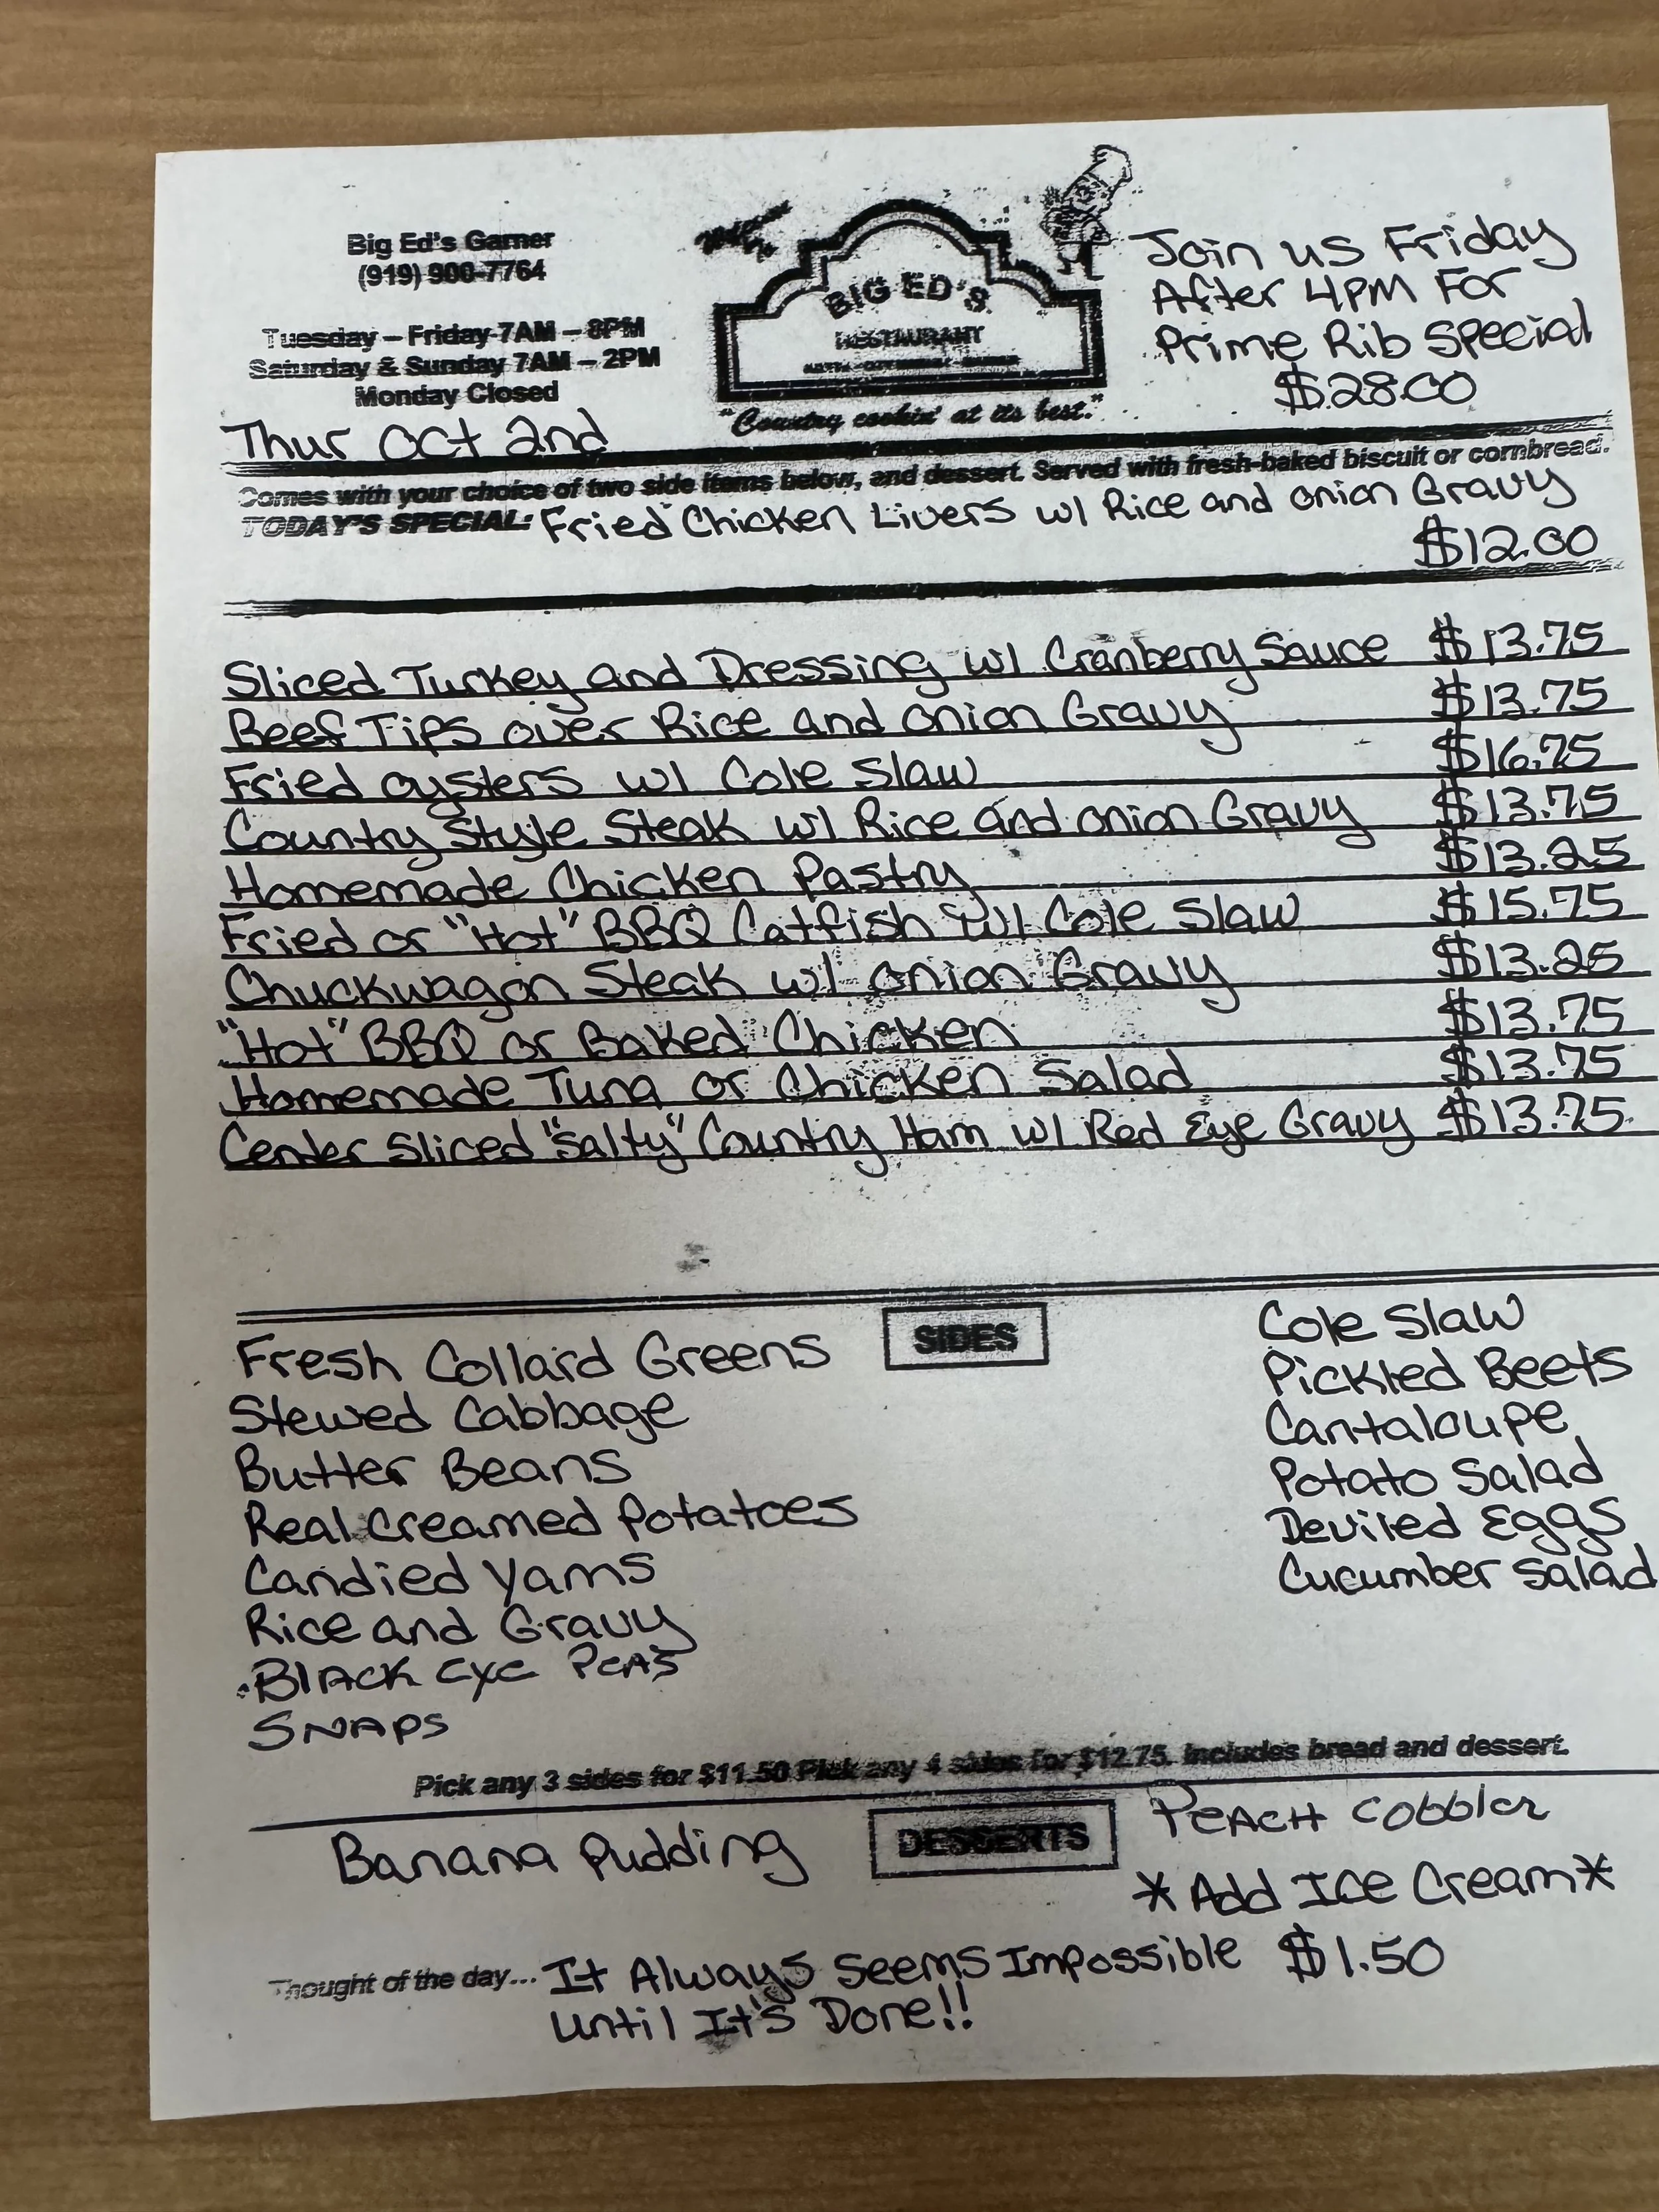 Big Ed's Garner
(919) 900-7764
Tuesday – Friday 7AM – 8PM
Saturday & Sunday 7AM – 2PM
Monday Closed
Thur Oct 2nd
BIG ED'S
RESTAURANT
"Country cookin' at its best."
Join us Friday
After 4PM For
Prime Rib Special
$28.00
Comes with your choice of two side items below, and dessert. Served with fresh-baked biscuit or cornbread.
TODAY'S SPECIAL: Fried Chicken Livers w/ Rice and Onion Gravy
$12.00
Sliced Turkey and Dressing w/ Cranberry Sauce $13.75
Beef Tips over Rice and Onion Gravy $13.75
Fried Oysters w/ Cole Slaw $16.75
Country Style Steak w/ Rice and Onion Gravy $13.75
Homemade Chicken Pastry $13.25
Fried or "Hot" BBQ Catfish w/ Cole Slaw $15.75
Chuckwagon Steak w/ Onion Gravy $13.25
"Hot" BBQ or Baked Chicken $13.75
Homemade Tuna or Chicken Salad $13.75
Center Sliced "Salty" Country Ham w/ Red Eye Gravy $13.75
SIDES
Fresh Collard Greens
Stewed Cabbage
Butter Beans
Real Creamed Potatoes
Candied Yams
Rice and Gravy
Black Eye Peas
SNAPS
Cole Slaw
Pickled Beets
Cantaloupe
Potato Salad
Deviled Eggs
Cucumber Salad
Pick any 3 sides for $11.50 Pick any 4 sides for $12.75. Includes bread and dessert.
DESSERTS
Banana Pudding
Peach Cobbler
*Add Ice Cream*
$1.50
Thought of the day... It Always Seems Impossible
Until It's Done!!